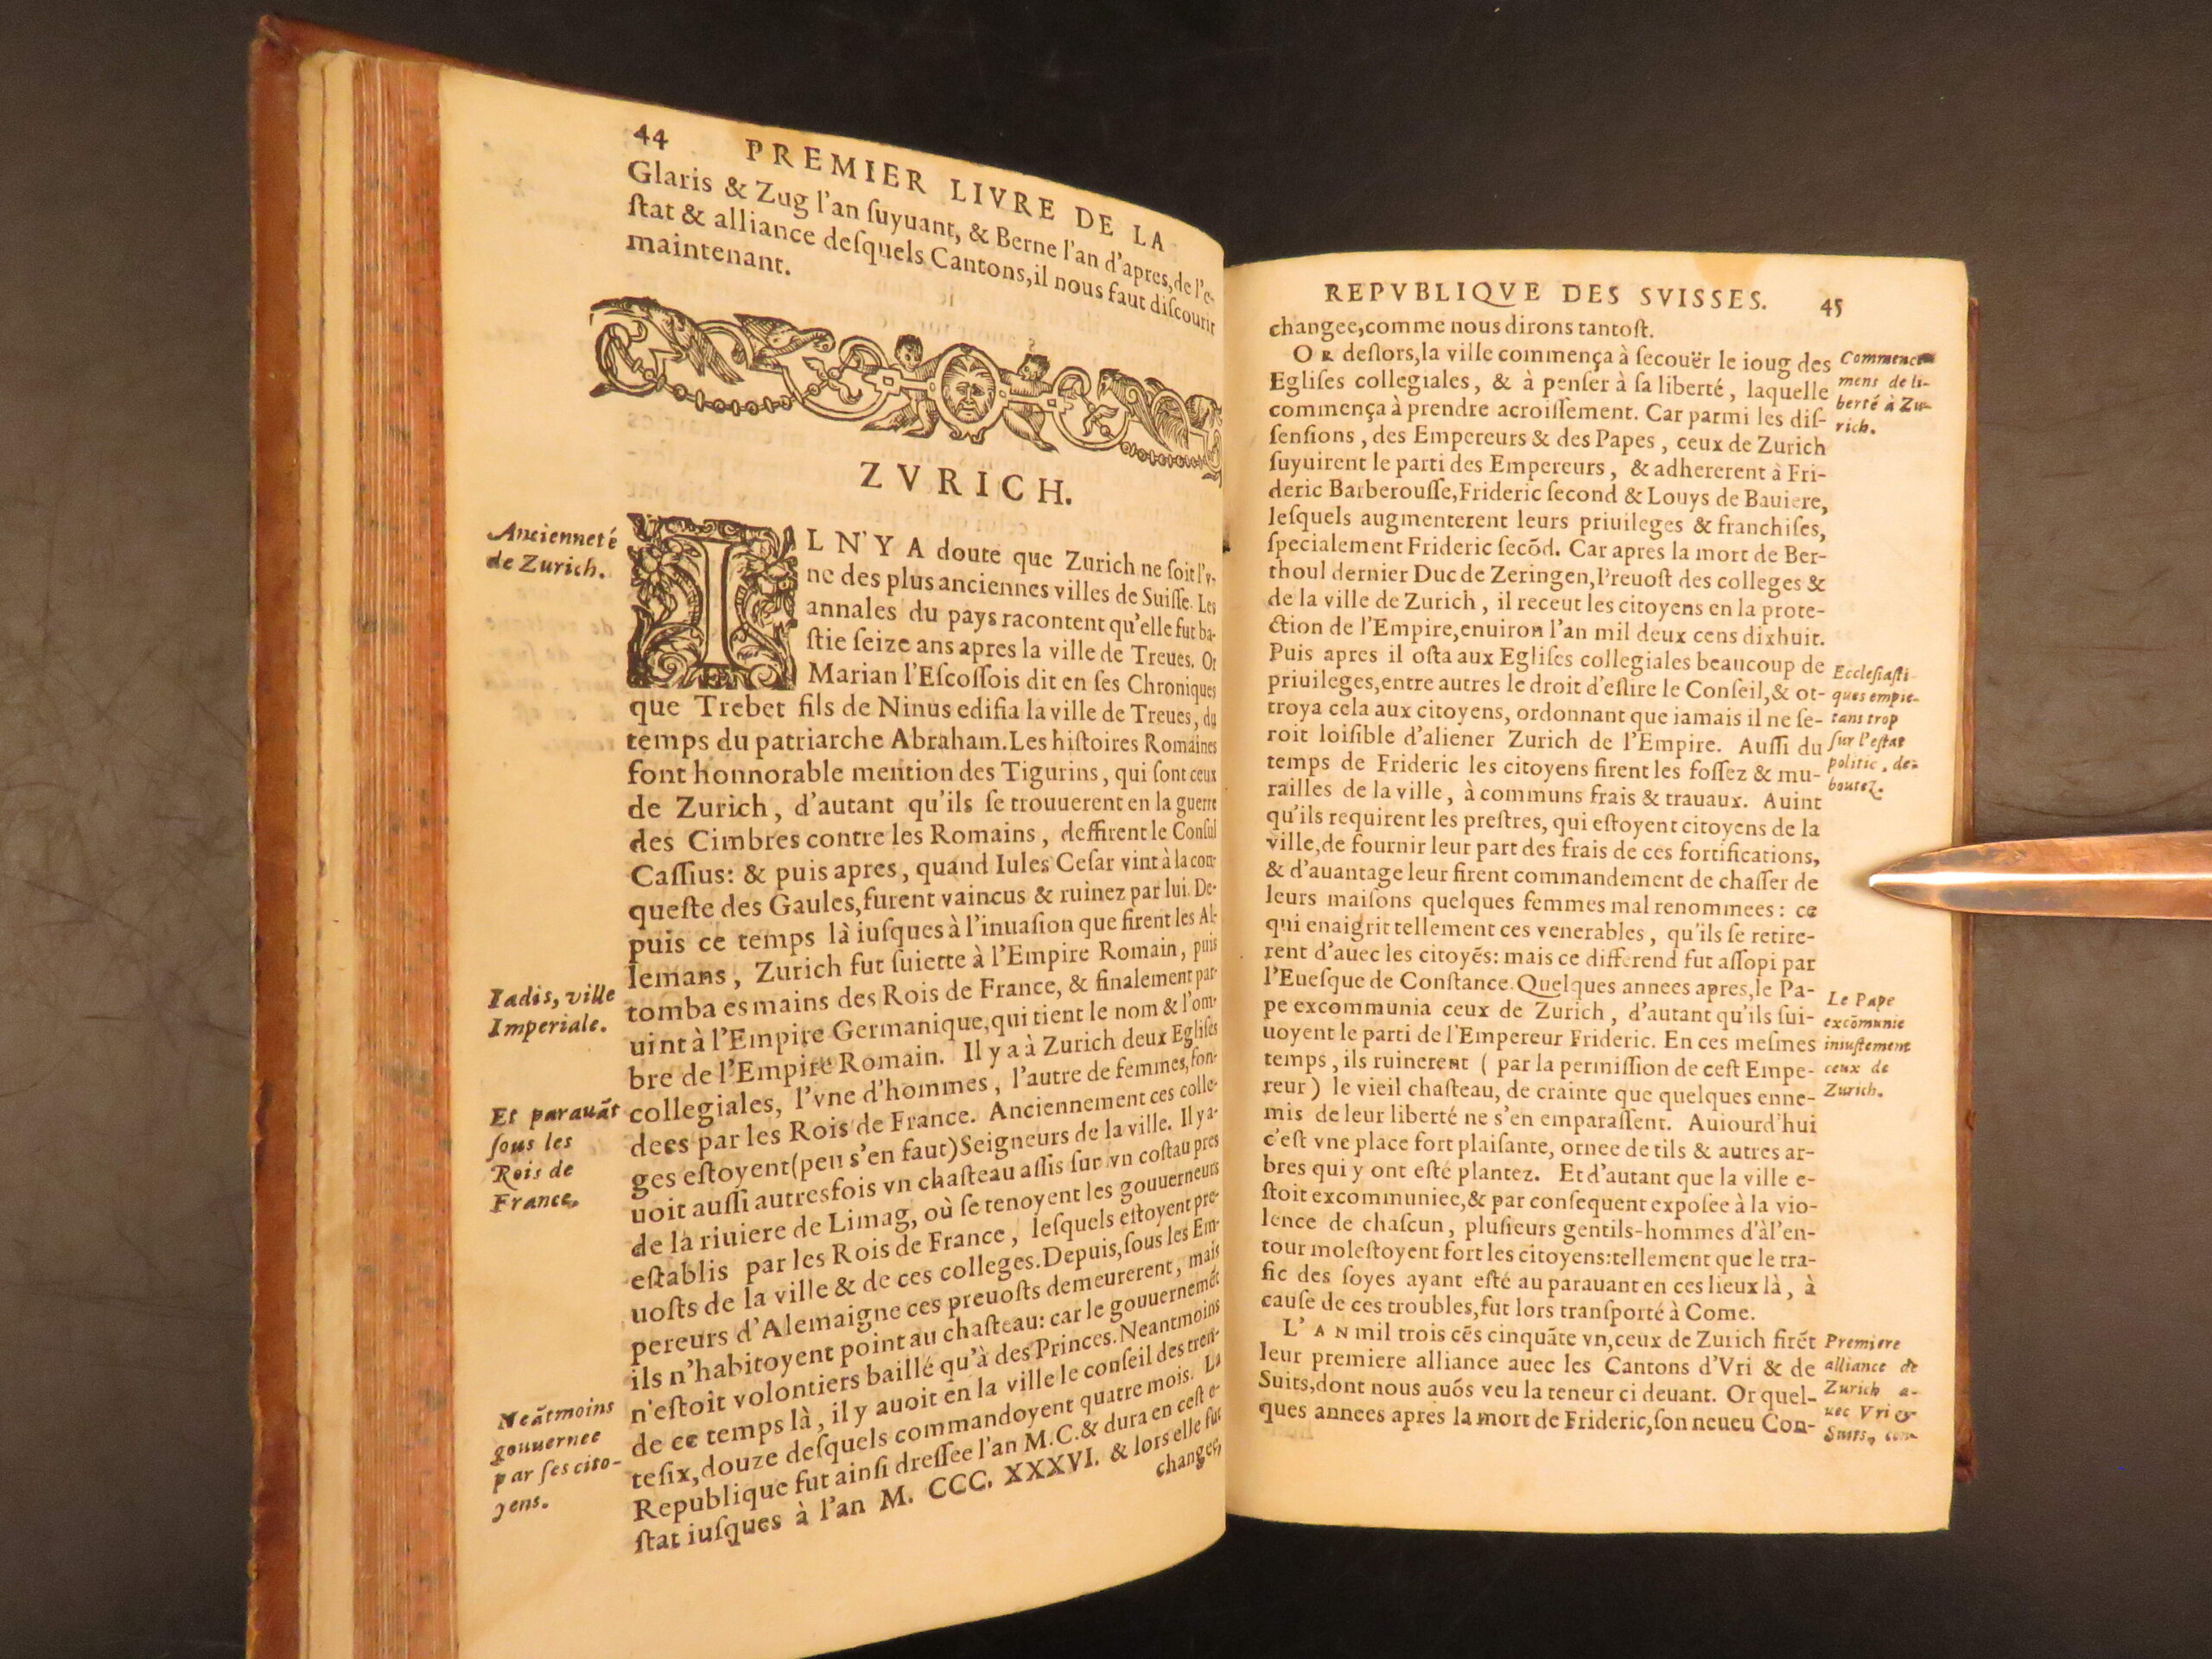 44 PREMIER LIVRE DE LA
Glaris & Zug l'an ſuyuant, & Berne l'an d'apres, de l'e-
ſtat & alliance deſquels Cantons, il nous faut diſcourir
maintenant.
ZVRICH.
Ancienneté
de Zurich.
IL N'Y A doute que Zurich ne ſoit l'v-
ne des plus anciennes villes de Suiſſe. Les
annales du pays racontent qu'elle fut ba-
ſtie ſeize ans apres la ville de Treues. Or
Marian l'Eſcoſſois dit en ſes Chroniques
que Trebet fils de Ninus edifia la ville de Treues, du
temps du patriarche Abraham. Les hiſtoires Romaines
font honnorable mention des Tigurins, qui ſont ceux
de Zurich, d'autant qu'ils ſe trouuerent en la guerre
des Cimbres contre les Romains, deffirent le Conſul
Caſſius: & puis apres, quand Iules Ceſar vint à la con-
queſte des Gaules, furent vaincus & ruinez par lui. De-
puis ce temps là iuſques à l'inuaſion que firent les Al-
lemans, Zurich fut ſuiette à l'Empire Romain, puis
Iadis, ville
Imperiale.
tomba es mains des Rois de France, & finalement par-
uint à l'Empire Germanique, qui tient le nom & l'om-
bre de l'Empire Romain. Il y a à Zurich deux Egliſes
Et parauãt
ſous les
Rois de
France.
collegiales, l'vne d'hommes, l'autre de femmes, fon-
dees par les Rois de France. Anciennement ces colle-
ges eſtoyent (peu s'en faut) Seigneurs de la ville. Il y a-
uoit auſſi autresfois vn chaſteau aſſis ſur vn coſtau pres
de la riuiere de Limag, où ſe tenoyent les gouuerneurs
eſtablis par les Rois de France, leſquels eſtoyent pre-
uoſts de la ville & de ces colleges. Depuis, ſous les Em-
pereurs d'Alemaigne ces preuoſts demeurerent, mais
ils n'habitoyent point au chaſteau: car le gouuernemẽt
n'eſtoit volontiers baillé qu'à des Princes. Neantmoins
Neãtmoins
gouuernee
par ſes cito-
yens.
de ce temps là, il y auoit en la ville le conſeil des tren-
teſix, douze deſquels commandoyent quatre mois. La
Republique fut ainſi dreſſee l'an M.C. & dura en ceſt e-
ſtat iuſques à l'an M. CCC. XXXVI. & lors elle fut
changee,
REPVBLIQVE DES SVISSES. 45
changee, comme nous dirons tantoſt.
OR deſlors, la ville commença à ſecouër le ioug des
Egliſes collegiales, & à penſer à ſa liberté, laquelle
commença à prendre acroiſſement. Car parmi les diſ-
ſenſions, des Empereurs & des Papes, ceux de Zurich
Commence-
mens de li-
berté à Zu-
rich.
ſuyuirent le parti des Empereurs, & adhererent à Fri-
deric Barberouſſe, Frideric ſecond & Louys de Bauiere,
leſquels augmenterent leurs priuileges & franchiſes,
ſpecialement Frideric ſecõd. Car apres la mort de Ber-
thoul dernier Duc de Zeringen, Preuoſt des colleges &
de la ville de Zurich, il receut les citoyens en la prote-
ction de l'Empire, enuiron l'an mil deux cens dixhuit.
Puis apres il oſta aux Egliſes collegiales beaucoup de
priuileges, entre autres le droit d'eſlire le Conſeil, & ot-
troya cela aux citoyens, ordonnant que iamais il ne ſe-
roit loiſible d'aliener Zurich de l'Empire. Auſſi du
temps de Frideric les citoyens firent les foſſez & mu-
railles de la ville, à communs frais & trauaux. Auint
Eccleſiaſti-
ques empie-
tans trop
ſur l'eſtat
politic, de-
boutez.
qu'ils requirent les preſtres, qui eſtoyent citoyens de la
ville, de fournir leur part des frais de ces fortifications,
& d'auantage leur firent commandement de chaſſer de
leurs maiſons quelques femmes mal renommees: ce
qui enaigrit tellement ces venerables, qu'ils ſe retire-
rent d'auec les citoyẽs: mais ce differend fut aſſopi par
l'Eueſque de Conſtance. Quelques annees apres, le Pa-
pe excommunia ceux de Zurich, d'autant qu'ils ſui-
uoyent le parti de l'Empereur Frideric. En ces meſmes
temps, ils ruinerent ( par la permiſſion de ceſt Empe-
reur ) le vieil chaſteau, de crainte que quelques enne-
Le Pape
excõmunie
iniuſtement
ceux de
Zurich.
mis de leur liberté ne s'en emparaſſent. Auiourd'hui
c'eſt vne place fort plaiſante, ornee de tils & autres ar-
bres qui y ont eſté plantez. Et d'autant que la ville e-
ſtoit excommuniee, & par conſequent expoſee à la vio-
lence de chaſcun, pluſieurs gentils-hommes d'àl'en-
tour moleſtoyent fort les citoyens: tellement que le tra-
fic des ſoyes ayant eſté au parauant en ces lieux là, à
cauſe de ces troubles, fut lors tranſporté à Come.
L'AN mil trois cẽs cinquãte vn, ceux de Zurich firẽt
leur premiere alliance auec les Cantons d'Vri & de
Suits, dont nous auõs veu la teneur ci deuant. Or quel-
ques annees apres la mort de Frideric, ſon neueu Con-
Premiere
alliance de
Zurich a-
uec Vri &
Suits, con-